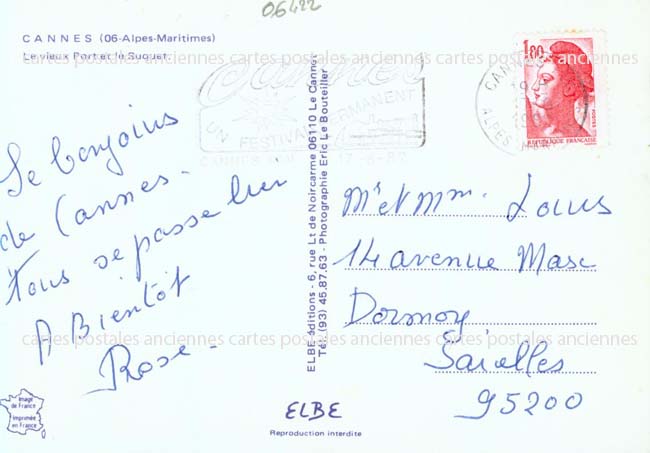 06422
CANNES (06-Alpes-Maritimes)
Le vieux Port et le Suquet.
cartes postales anciennes cartes postales anciennes cartes postales anciennes
Cannes
UN FESTIVAL PERMANENT
1,80
REPUBLIQUE FRANCAISE
CANNES
ALPES MAR
Le bonjour
de Cannes.
Tous se passe bien
A Bientôt
Rose.
ELBE-éditions - 6, rue Lt de Noircarme 06110 Le Cannet
Tél. (93) 45.87.63 - Photographie Eric Le Bouteiller
Mr et Mme. Louis
14 avenue Marx
Dormoy
Sarcelles
95200
cartes postales anciennes cartes postales anciennes cartes postales anciennes
Image
de France
Imprimée
en France
ELBE
Reproduction interdite